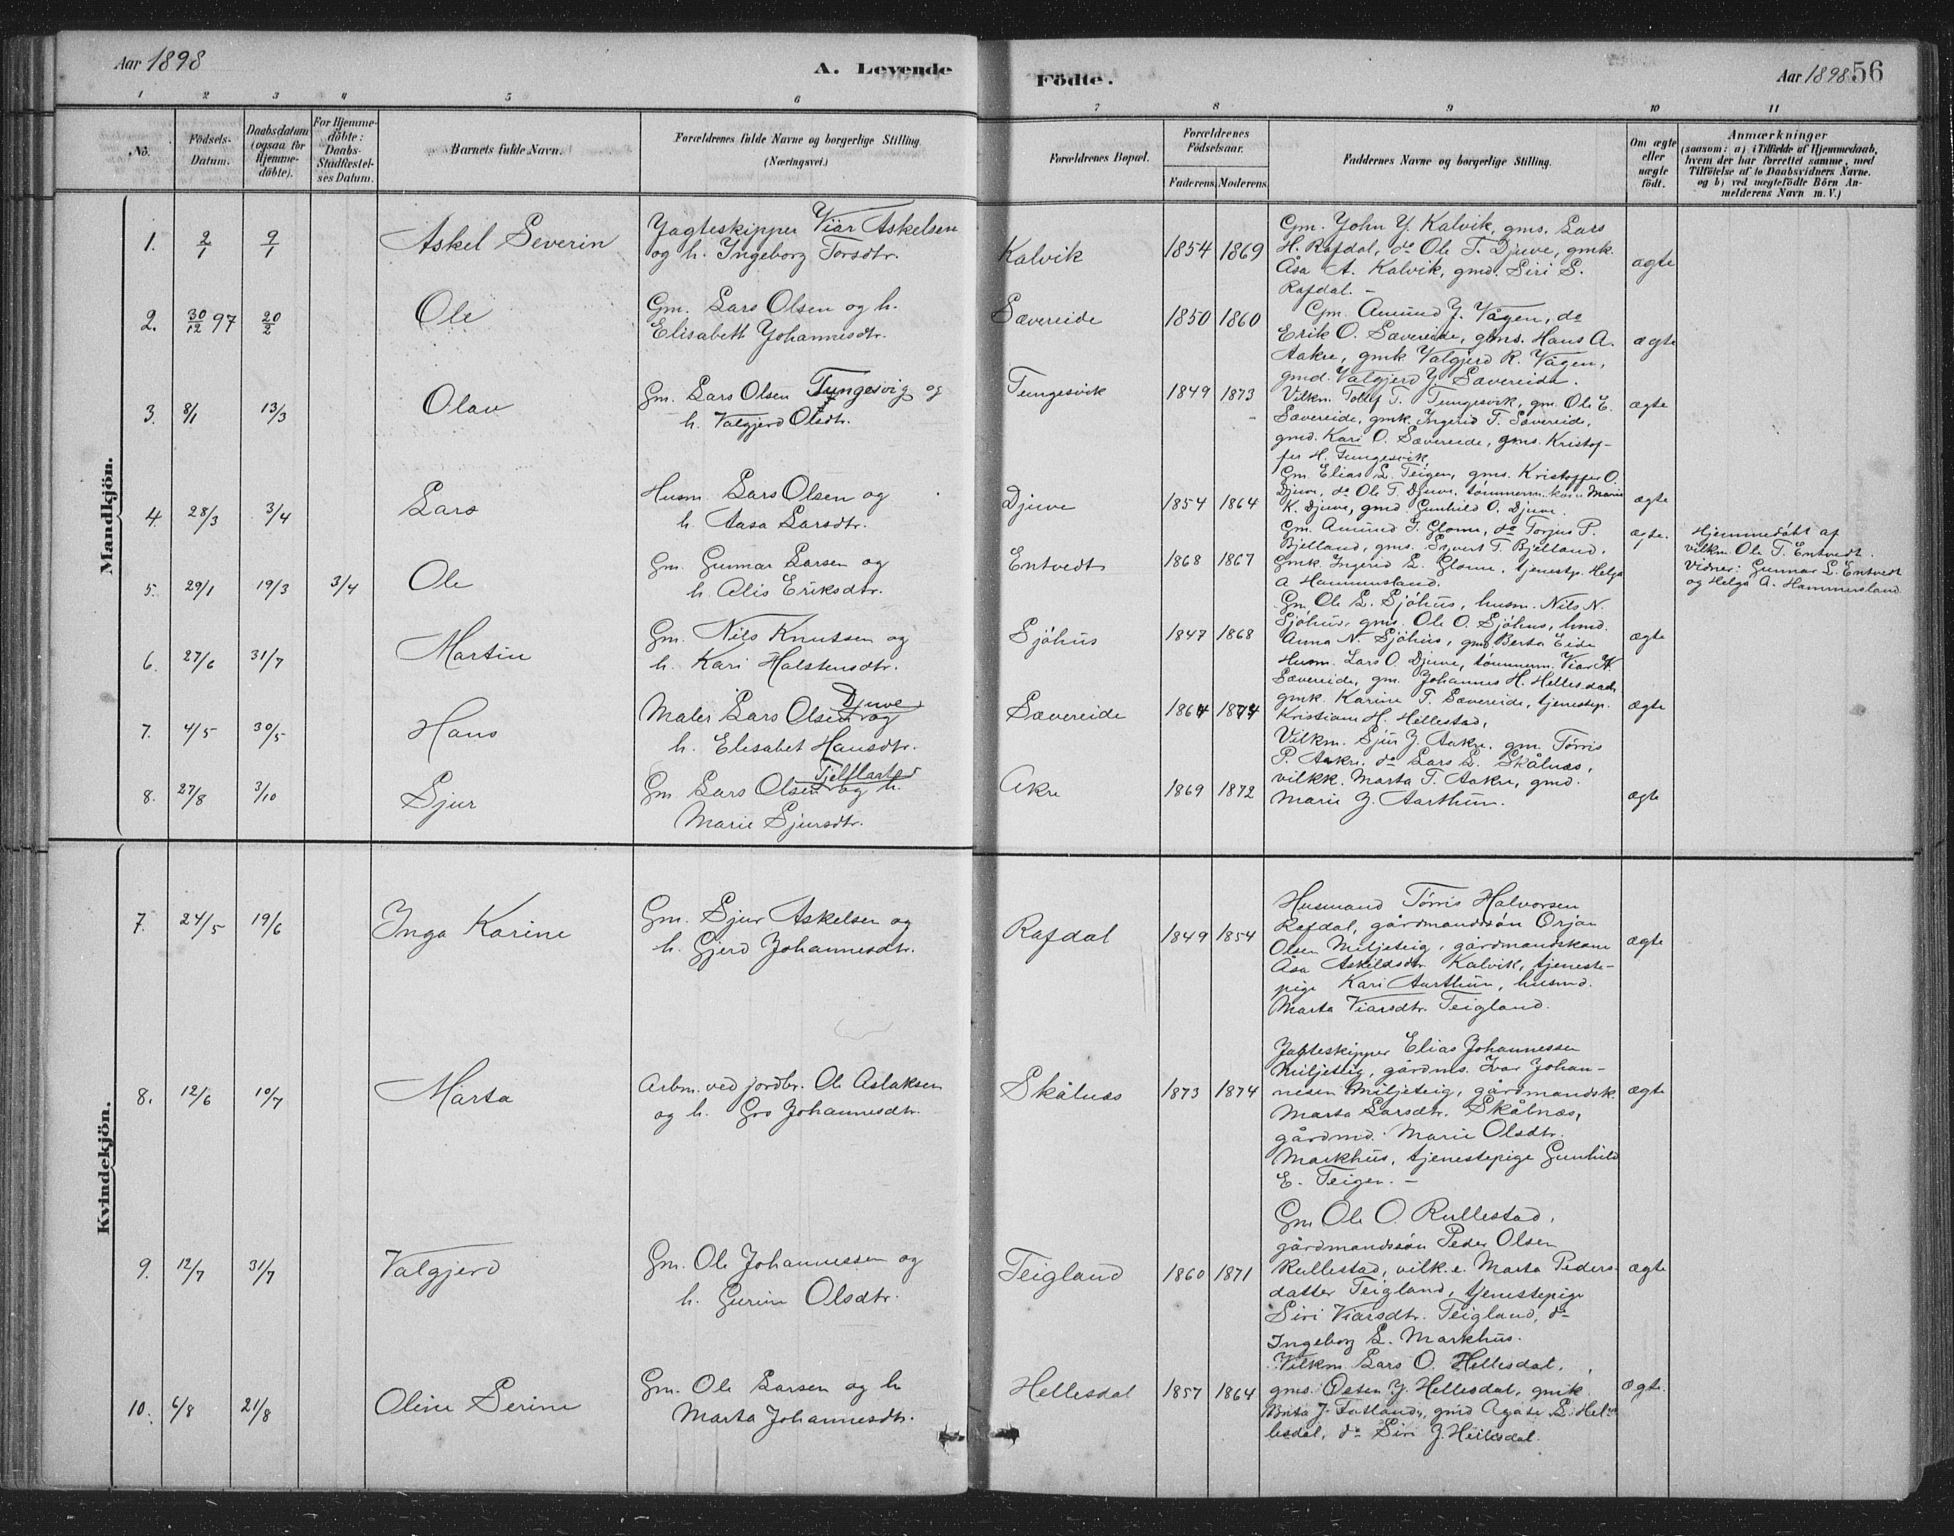 Aar 1898
A. Levende
Födte.
Aar 1898
56
1 2 3 4 5 6 7 8 9 10 11
No.
Födsels-
Datum.
Daabsdatum
(ogsaa for
Hjemme-
döbte).
For Hjemme-
döbte:
Daabs-
Stadfæstel-
ses Datum.
Barnets fulde Navn.
Forældrenes fulde Navne og borgerlige Stilling
(Næringsvei.)
Forældrenes Bopæl.
Forældrenes
Födselsaar.
Faderens
Moderens
Faddernes Navne og borgerlige Stilling.
Om ægte
eller
uægte
födt.
Anmærkninger
(saasom: a) i Tilfælde af Hjemmedaab,
hvem der har forrettet samme, med
Tilföielse af to Daabsvidners Navne.
og b) ved uægtefödte Börn An-
melderens Navn m. V.)
Mandkjön.
1. 2/1 9/1 Askel Severin
Jagteskipper Viar Askelsen
og h. Ingeborg Torsdtr.
Kalvik 1854 1869
Gm. John Y. Kalvik, gms. Lars
H. Rafdal, do Ole T. Djuve, gmk.
Åsa A. Kalvik, gmd. Siri S.
Rafdal. –
ægte
2. 30/12 97 20/2 Ole
Gm. Lars Olsen og h.
Elisabeth Johannesdtr.
Sævereide 1850 1860
Gm. Amund J. Vågen, do
Erik O. Sævereide, gms. Hans A.
Aakre, gmk. Valgjerd R. Vågen,
gmd. Valgjerd Y. Sævereide.
ægte
3 8/1 13/3 Olav
Gm. Lars Olsen Tungesvig og
h. Valgjerd Olsdtr.
Tungesvik 1849 1873
Vilkm. Tollef T. Tungesvik, gm. Ole E.
Sævereide, gmk. Ingerid T. Sævereide,
gmd. Kari O. Sævereide, gms. Kristof-
fer H. Tungesvik
ægte
4. 28/3 3/4 Lars
Husm. Lars Olsen og
h. Aasa Larsdtr.
Djuve 1854 1864
Gm. Elias L. Teigen, gms. Kristoffer O.
Djuve, do Ole T. Djuve, tømmerm. kone Marie
K. Djuve, gmd. Gunhild O. Djuve.
ægte
5. 29/1 19/3 3/4 Ole
Gm. Gunnar Larsen og
h. Alis Eriksdtr.
Entvedt 1868 1867
Gm. Amund J. Glome, do Torjus P.
Bjelland, gms. Sivert T. Bjelland,
Gmk. Ingerid L. Glome, tjenestp. Helga
A Hammersland.
ægte.
Hjemmedöbt af
vilkm. Ole T. Entvedt.
Vidner: Gunnar L. Entvedt
og Helga A. Hammersland
6. 27/6 31/7 Martin
Gm. Nils Knutsen og
h. Kari Halstensdtr.
Sjöhus 1847 1868
Gm. Ole L. Sjöhus, husm. Nils N.
Sjöhus, gms. Ole O. Sjöhus, hmd.
Anna N. Sjöhus, gmd Berta Eide
ægte
7. 4/5 30/5 Hans
Maler Lars Olsen Djuve og
h. Elisabet Hansdtr.
Sævereide 1864 1874
Husm. Lars O. Djuve, tømmerm. Viar N.
Sævereide, gm. Johannes H. Hellestad,
gmk. Karine T. Sævereide, tjenestep.
Kristiane H. Hellestad,
ægte
8. 27/8 3/10 Sjur
Gm Lars Olsen Tjelflaat og h.
Marie Sjursdtr.
Akre 1869 1872
Vilkm. Sjur J. Aakre. gm. Tørris
P. Aakre, do Lars L. Skålnæs,
vilkk. Marta T. Aakre, gmd.
Marie J. Aarthun.
ægte
Kvindekjön.
7. 24/5 19/6 Inga Karine
Gm. Sjur Askelsen og
h. Gjerd Johannesdtr.
Rafdal 1849 1854
Husmand Tørris Halvorsen
Rafdal, gårdmandssön Orjan
Olsen Miljeteig, gårdmandskone
Åsa Askildsdtr Kalvik, tjeneste-
pige Kari Aarthun, husmd.
Marta Viarsdtr. Teigland.
ægte
8. 12/6 10/7 Marta
Arbm. ved jordbr. Ole Aslaksen
og h. Gro Johannesdtr.
Skålnæs 1873 1874
Jagteskipper Elias Johannessen
Miljeteig, gårdms. Ivar Johan-
nesen Miljeteig, gårdmandsk.
Marta Larsdtr. Skålnæs,
gårdmd. Marie Olsdtr.
Markhus, tjenestepige Gunhild
E. Teigen. –
ægte
9. 12/7 31/7 Valgjerd
Gm. Ole Johannessen og
h. Gurine Olsdtr.
Teigland 1860 1871
Gm Ole O. Rullestad,
gårdmandssön Peder Olsen
Rullestad, vilk.e. Marta Peders-
datter Teigland, tjenestepige
Siri Viarsdtr. Teigland, do
Ingeborg L. Markhus.
ægte
10. 6/8 21/8 Oline Serine
Gm. Ole Larsen og h
Marta Johannesdtr.
Hellesdal 1857 1864
Vilkm. Lars O. Hellesdal,
gms. Østen J. Hellesdal, gmk.
Brita J. Fatland, gmd Agate L. Hel-
lesdal, do Siri J. Hellesdal.
ægte.